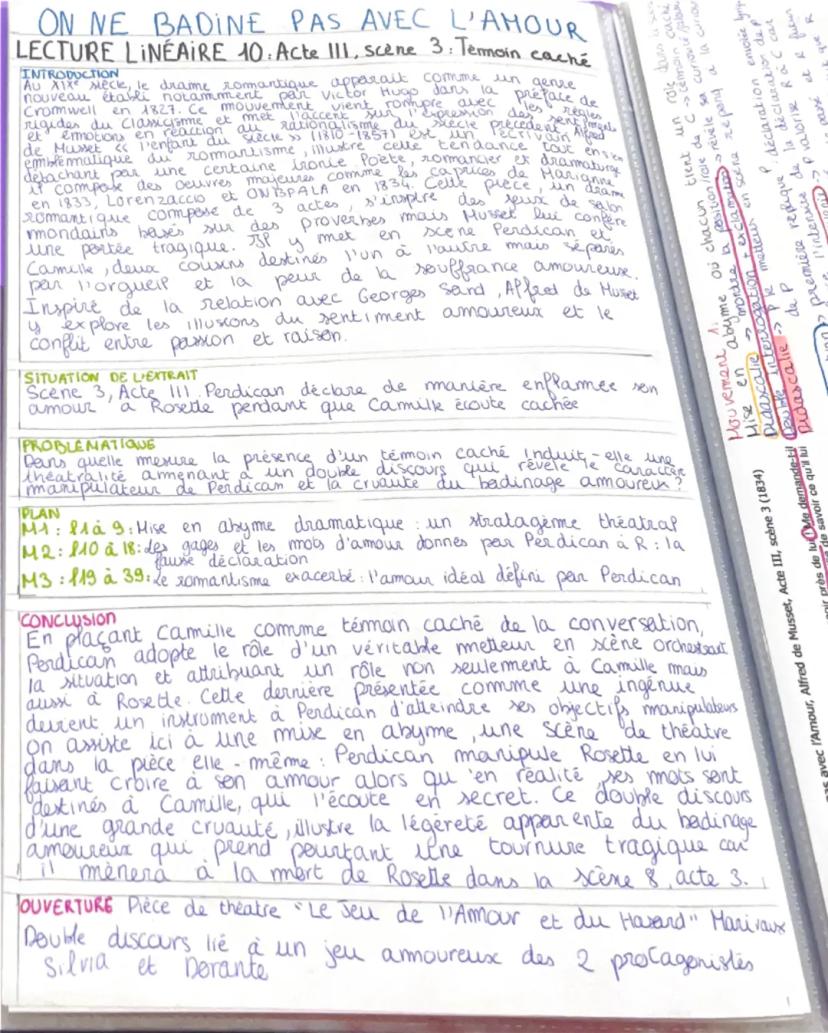 ON NE BADINE PAS AVEC L'AMOUR
LECTURE LINÉAIRE 10 : Acte III, scène 3 : Témoin caché
INTRODUCTION
Au XIXe siècle, le drame romantique apparait comme un genre
nouveau établi notamment par Victor Hugo dans la préface de
Cromwell en 1827. Ce mouvement vient rompre avec les règles
rigides du Classicisme et met l'accent sur l'expression des sentiments
et émotions en réaction au rationalisme du siècle précédent. Alfred
de Musset << l'enfant du siècle >> (1810-1857) est un écrivain
emblématique du romantisme, illustre cette tendance tout en s'en
détachant par une certaine ironie. Poète, romancier et dramaturge
il compose des oeuvres majeures comme les caprices de Marianne
en 1833, Lorenzaccio et ONBPALA en 1834. Cette pièce, un drame
romantique composé de 3 actes, s'inspire des jeux de salon
mondains basés sur des proverbes mais Musset lui confère
une portée tragique. Il y met en scène Perdican et
Camille, deux cousins destinés l'un à l'autre mais séparés
par l'orgueil et la peur de la souffrance amoureuse.
Inspiré de la relation avec Georges Sand, Alfred de Musset
y explore les illusions du sentiment amoureux et le
conflit entre passion et raison.
SITUATION DE L'EXTRAIT
Scène 3, Acte III. Perdican déclare de manière enflammée son
amour à Rosette pendant que Camille écoute cachée
PROBLÉMATIQUE
Dans quelle mesure la présence d'un témoin caché induit-elle une
théâtralité amenant à un double discours qui révèle le caractère
manipulateur de Perdican et la cruauté du badinage amoureux ?
PLAN
M1 : l1 à 9 : Mise en abyme dramatique : un stratagème théatral
M2 : l10 à 18 : Les gages et les mots d'amour donnés par Perdican à R : la
fausse déclaration
M3 : l19 à 39 : Le romantisme exacerbé : l'amour idéal défini par Perdican
CONCLUSION
En plaçant Camille comme témoin caché de la conversation,
Perdican adopte le rôle d'un véritable metteur en scène orchestrant
la situation et attribuant un rôle non seulement à Camille mais
aussi à Rosette. Cette dernière présentée comme une ingénue
devient un instrument à Perdican d'atteindre ses objectifs manipulateurs
On assiste ici à une mise en abyme, une scène de théâtre
dans la pièce elle-même : Perdican manipule Rosette en lui
faisant croire à son amour alors qu'en réalité, ses mots sont
destinés à Camille, qui l'écoute en secret. Ce double discours
d'une grande cruauté, illustre la légèreté apparente du badinage
amoureux qui prend pourtant une tournure tragique car
il mènera à la mort de Rosette dans la scène 8, acte 3.
OUVERTURE Pièce de théatre "Le Jeu de l'Amour et du Hasard" Marivaux
Double discours lié à un jeu amoureux des 2 protagonistes
Silvia et Dorante
1
Mouvement 1:
Mise en abyme où chacun tient un rôle dans la
Didascalie
Double interrogation
Didascalie
première réplique de P
as avec l'Amour, Alfred de Musset, Acte III, scène 3 (1834)
oir près de lui
Me demande-t-il
de savoir ce qu'il lui